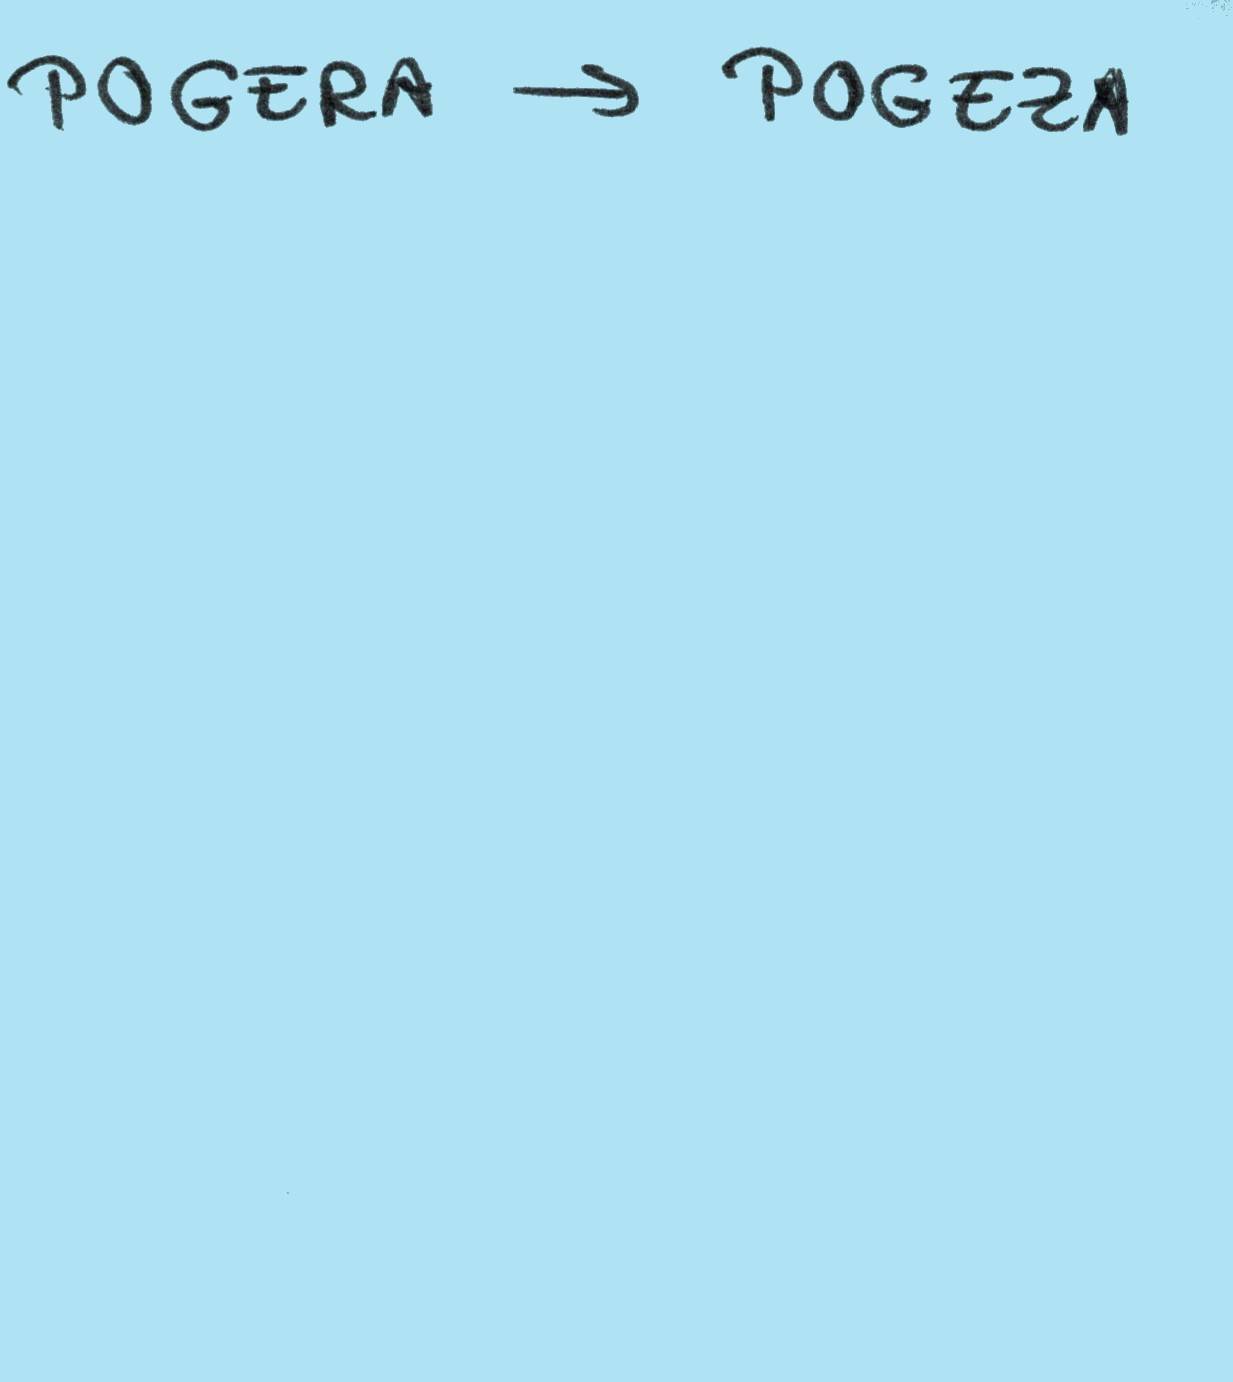 POGERA → POGEZA